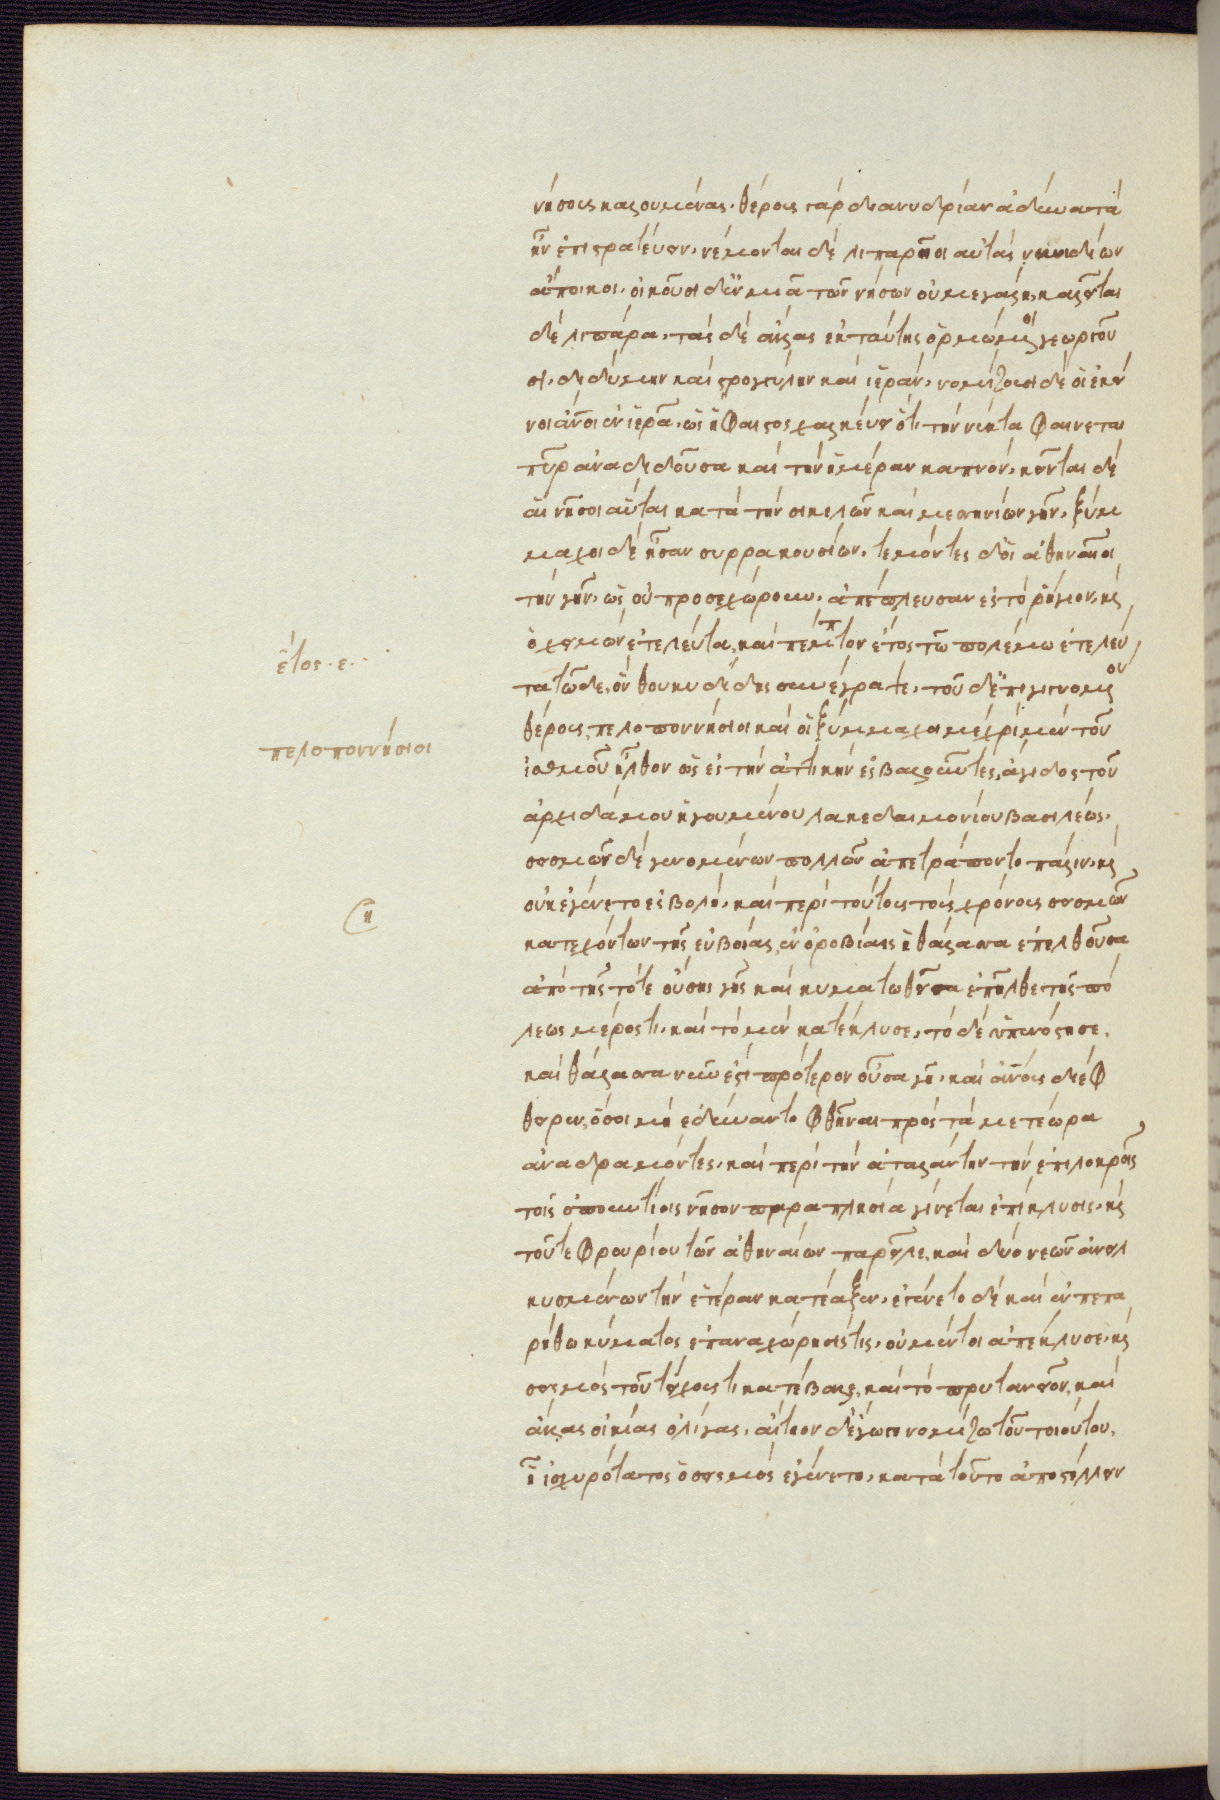 νήσους καλουμένας. θέρους γὰρ δι ἀνυδρίαν ἀδύνατα
ἦν ἐπιστρατεύειν. νέμονται δὲ λιπαραῖοι αὐτὰς κνιδίων
ἄποικοι. οἰκοῦσι δ ἐν μιᾷ τῶν νήσων οὐ μεγάλη. καλεῖται
δὲ λιπάρα. τὰς δὲ ἄλλας ἐκ ταύτης ὁρμώμενοι γεωργοῦ
σι. διδύμην καὶ στρογγύλην καὶ ἱεράν. νομίζουσι δὲ οἱ ἐκεί
νοι ἄνοι ἐν ἱερᾷ. ὡς ἥφαιστος χαλκεύει ὅτι τὴν νύκτα φαίνεται
πῦρ ἀναδιδοῦσα καὶ τὴν ἡμέραν καπνόν. κεῖνται δὲ
αἱ νῆσοι αὗται κατὰ τὴν σικελῶν καὶ μεσηνίων γῆν. ξύμ
μαχοι δὲ ἦσαν συρρακουσίων. τεμόντες δ οἱ ἀθηναῖοι
τὴν γῆν. ὡς οὐ προσεχώρουν. ἀπέπλευσαν ἐς τὸ ῥήγιον. καὶ
ὁ χειμὼν ἐτελεύτα. καὶ πέμπτον ἔτος τῷ πολέμω ἐτελεύ
τα τῶδε. ὃν θουκυδίδης συνέγραψε. τοῦ δ ἐπιγιγνομένου
ἔτος. ε.
θέρους. πελοποννήσιοι καὶ οἱ ξύμμαχοι μέχρι μὲν τοῦ
πελοποννήσιοι
ἰσθμοῦ ἦλθον ὡς ἐς τὴν ἀττικὴν ἐσβαλοῦντες. ἄγιδος τοῦ
ἀρχιδάμου ἡγουμένου λακεδαιμονίου βασιλέως.
σεισμῶν δὲ γενομένων πολλῶν ἀπετράποντο πάλιν. καὶ
οὐκ ἐγένετο ἐσβολή. καὶ περὶ τούτους τοὺς χρόνους σεισμῶν
κατεχόντων τῆς εὐβοίας. ἐν ὀροβίαις ἡ θάλασσα ἐπελθοῦσα
ἀπὸ τῆς τότε οὔσης γῆς καὶ κυματωθεῖσα ἐπῆλθε τῆς πό
λεως μέρος τι. καὶ τὸ μὲν κατέκλυσε. τὸ δ ὑπενόστησε.
καὶ θάλασσα νῦν ἐστὶ πρότερον οὖσα γῆ. καὶ ἄνους διέφ
θειρεν. ὅσοι μὴ ἐδύναντο φθῆναι πρὸς τὰ μετέωρα
ἀναδραμόντες. καὶ περὶ τὴν ἀταλάντην τὴν ἐπὶ λοκροῖς
τοῖς ὀπουντίοις νῆσον παραπλησία γίνεται ἐπίκλυσις. καὶ
τοῦ τε φρουρίου τῶν ἀθηναίων παρεῖλε. καὶ δύο νεῶν ἀνειλ
κυσμένων τὴν ἑτέραν κατέαξεν. ἐγένετο δὲ καὶ ἐν πεπα
ρήθω κύματος ἐπαναχώρησίς τις. οὐ μέντοι ἐπέκλυσε. καὶ
σεισμὸς τοῦ τείχους τι κατέβαλε. καὶ τὸ πρυτανεῖον. καὶ
ἄλλας οἰκίας ὀλίγας. αἴτιον δ ἔγωγε νομίζω τοῦ τοιούτου.
ᾗ ἰσχυρότατος ὁ σεισμὸς ἐγένετο. κατὰ τοῦτο ἀποστέλλειν